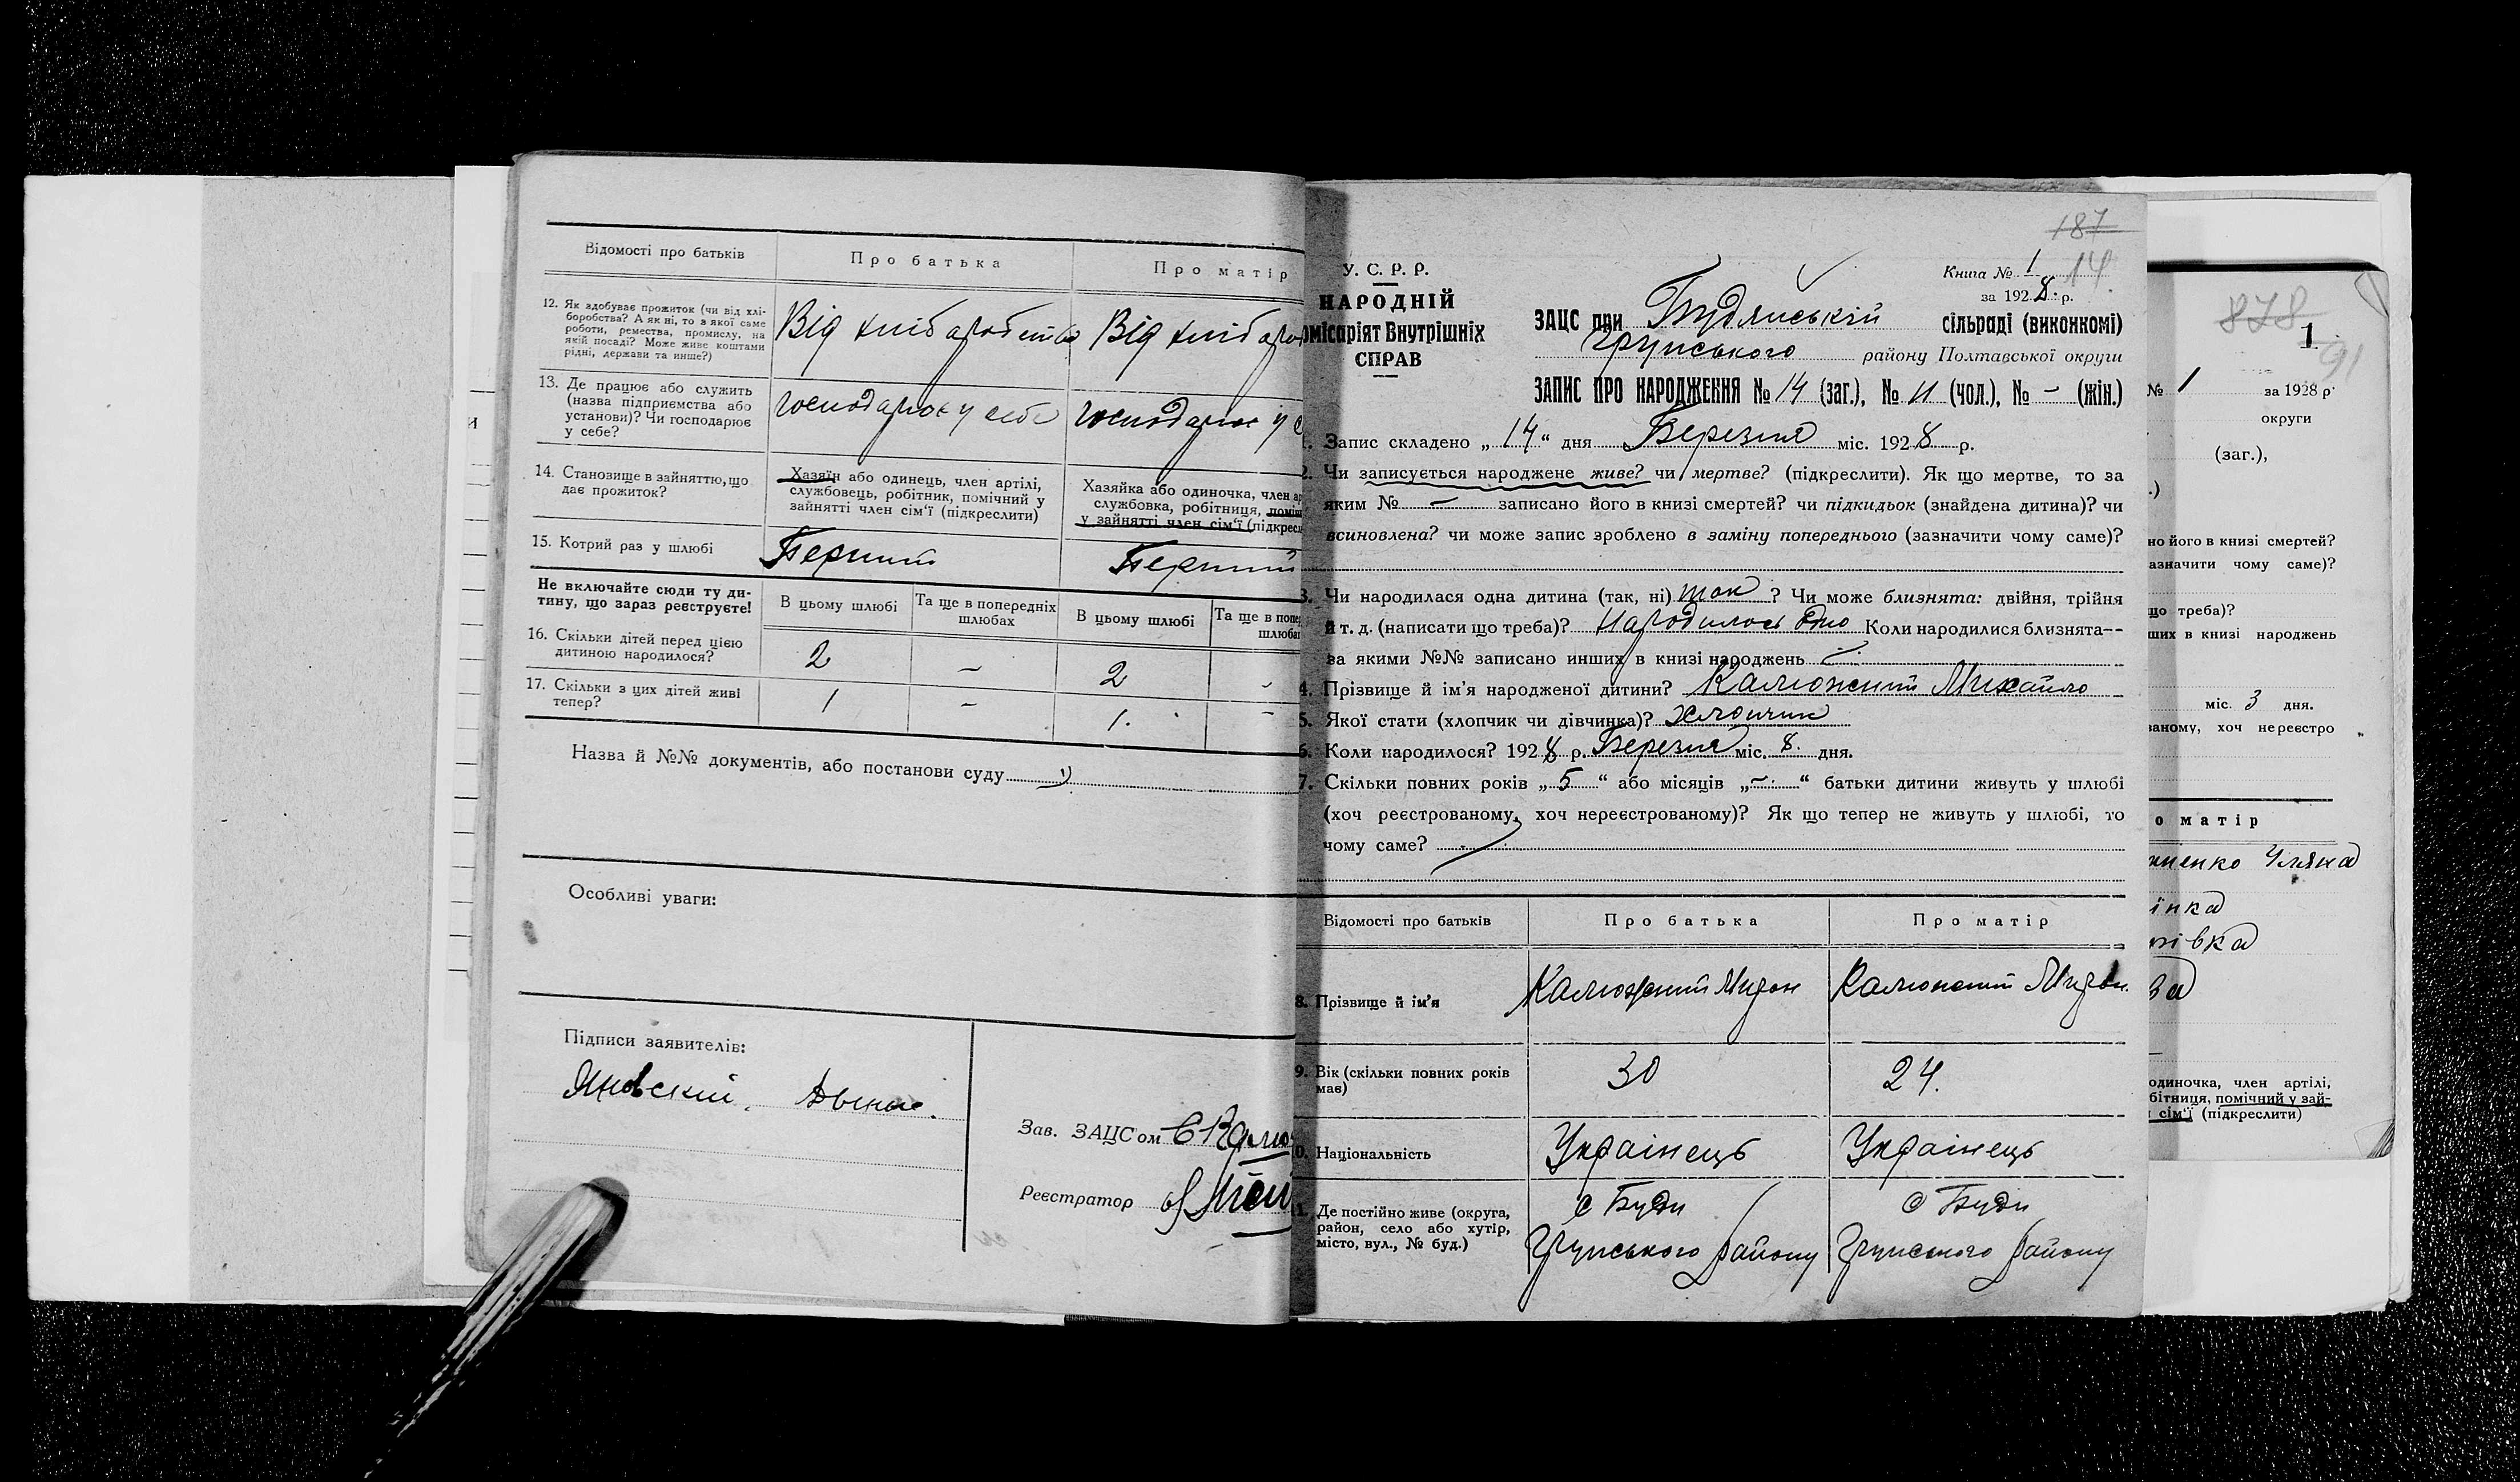 Відомості про батьків
Про батька
Про матір
12. Як здобуває прожиток (чи від хлі-
боробства? А як ні, то з якої саме
роботи, ремества, промислу, на
якій посаді? Може живе коштами
рідні, держави та инше?)
Від хлібаробства
Від хлібаро
13. Де працює або служить
(назва підприємства або
установи)? Чи господарює
у себе?
господарює у себе
господарює у с
14. Становище в зайняттю, що
дає прожиток?
Хазяїн або одинець, член артілі,
службовець, робітник, помічний у
зайнятті член сім'ї (підкреслити)
Хазяйка або одиночка, член ар
службовка, робітниця, поміч
у зайнятті член сім'ї (підкресл
15. Котрий раз у шлюбі
Перший
Перший
Не включайте сюди ту ди-
тину, що зараз реєструєте!
В цьому шлюбі
Та ще в попередніх
шлюбах
В цьому шлюбі
Та ще в попе
шлюбах
16. Скільки дітей перед цією
дитиною народилося?
2 – 2 –
17. Скільки з цих дітей живі
тепер?
1 – 1. –
Назва й №№ документів, або постанови суду
Особливі уваги:
Підписи заявителів:
Яновский.
Зав. ЗАЦС'ом Є Калю
Реєстратор
187
14
У. С. Р. Р.
НАРОДНІЙ
омісаріят Внутрішніх
СПРАВ
Книга № 1
за 1928 р.
ЗАЦС при Будянській сільраді (виконкомі)
Грунського району Полтавської округи
ЗАПИС ПРО НАРОДЖЕННЯ № 14 (заг.), № 11 (чол.), № – (жін.)
1. Запис складено „14“ дня Березня міс. 1928 р.
2. Чи записується народжене живе? чи мертве? (підкреслити). Як що мертве, то за
яким № – записано його в книзі смертей? чи підкидьок (знайдена дитина)? чи
всиновлена? чи може запис зроблено в заміну попереднього (зазначити чому саме)?
3. Чи народилася одна дитина (так, ні) так ? Чи може близнята: двійня, трійня
й т. д. (написати що треба)? Народилось одно Коли народилися близнята--
за якими №№ записано инших в книзі народжень –
4. Прізвище й ім'я народженої дитини? Калюжний Михайло
5. Якої стати (хлопчик чи дівчинка)? Хлопчик
6. Коли народилося? 1928 р. Березня міс. 8. дня.
7. Скільки повних років „5“ або місяців „–“ батьки дитини живуть у шлюбі
(хоч реєстрованому, хоч нереєстрованому)? Як що тепер не живуть у шлюбі, то
чому саме?
Відомості про батьків
Про батька
Про матір
8. Прізвище й ім'я
Калюжний Мирон
Калюжний
9. Вік (скільки повних років
має)
30
24.
0. Національність
Українець
Українець
1. Де постійно живе (округа,
район, село або хутір,
місто, вул., № буд.)
с Буди
Грунського району
с Буди
Грунського району
878
1
91
№ 1 за 1928 р.
округи
(заг.),
.)
но його в книзі смертей?
азначити чому саме)?
що треба)?
ших в книзі народжень
міс. 3 дня.
ваному, хоч нереєстро
о матір
ненко Уляна
інка
івка
ва
одиночка, член артілі,
бітниця, помічний у зай-
сім'ї (підкреслити)